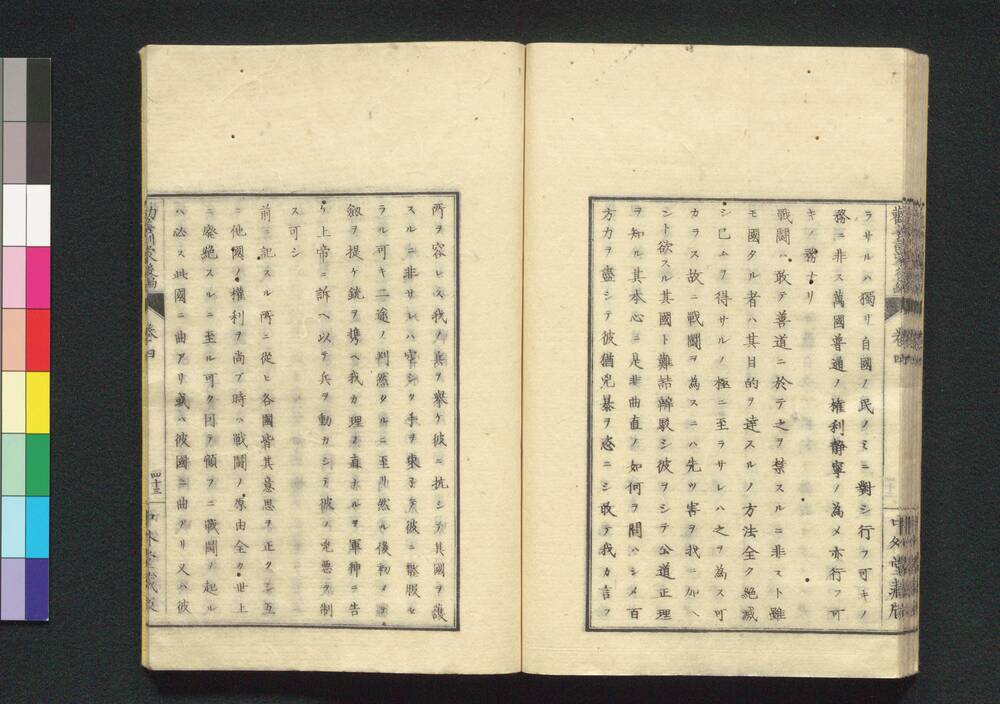 ラサルハ獨リ自國ノ民ノミニ對シ行フ可キノ
務ニ非ス萬國普通ノ權利靜寧ノ為メ亦行フ可
キノ務ナリ
戰鬪ハ敢テ善道ニ於テ之ヲ禁スルニ非スト雖
モ國タル者ハ其目的ヲ達スルノ方法全ク絕滅
シ已ムヲ得サルノ極ニ至ラサレハ之ヲ為ス可
カラス故ニ戰鬪ヲ為スニハ先ツ害ヲ我ニ加ヘ
ント欲スル其國ト難詰辨駁シ彼ヲシテ公道正理
ヲ知ル其本心ニ是非曲直ノ如何ヲ問ハシメ百
方力ヲ盡シテ彼猶兇暴ヲ恣ニシ敢テ我カ言フ
卷四
所ヲ容レス我ノ兵ヲ擧ケ彼ニ抗シテ其國ヲ護
スルニ非サレハ寧シク手ヲ束子テ彼ニ懲服セ
ラル可キ二途ノ判然タルニ至リ然ル後初メテ
劔ヲ提ケ銃ヲ携ヘ我カ理ノ直ナルヲ軍神ニ告
ケ上帝ニ訴ヘ以テ兵ヲ動カシテ彼ノ兇惡ヲ制
ス可シ
前ニ記スル所ニ從ヒ各國皆其意思ヲ正クシ互
ニ他國ノ權利ヲ尚フ時ハ戰鬪ノ原由全ク世上
ニ廢絕スルニ至ル可ク因テ願フニ戰鬪ノ起ル
ハ必ス此國ニ曲アリ或ハ彼國ニ曲アリ又ハ彼
卷四
四十三